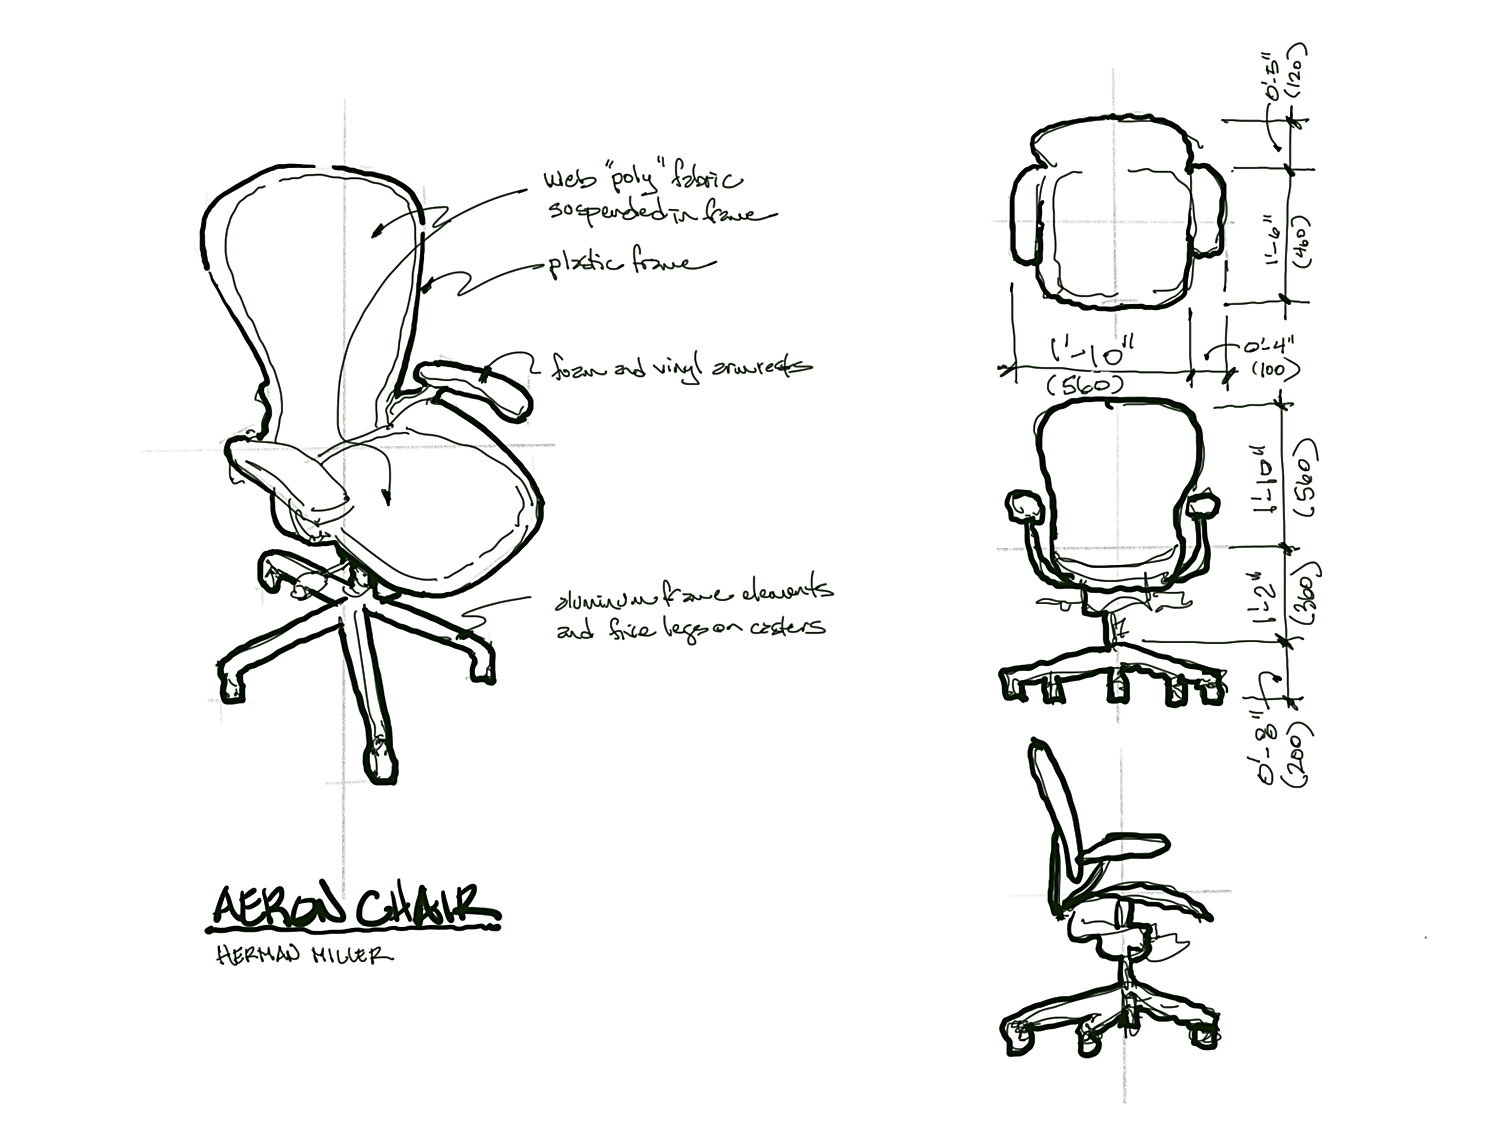 web "poly" fabric
suspended in frame
plastic frame
foam and vinyl armrests
aluminum frame elements
and five legs on casters
AERON CHAIR
HERMAN MILLER
0'-5"
(120)
1'-6"
(460)
1'-10"
(560)
0'-4"
(100)
1'-10"
(560)
1'-2"
(360)
0'-8"
(200)